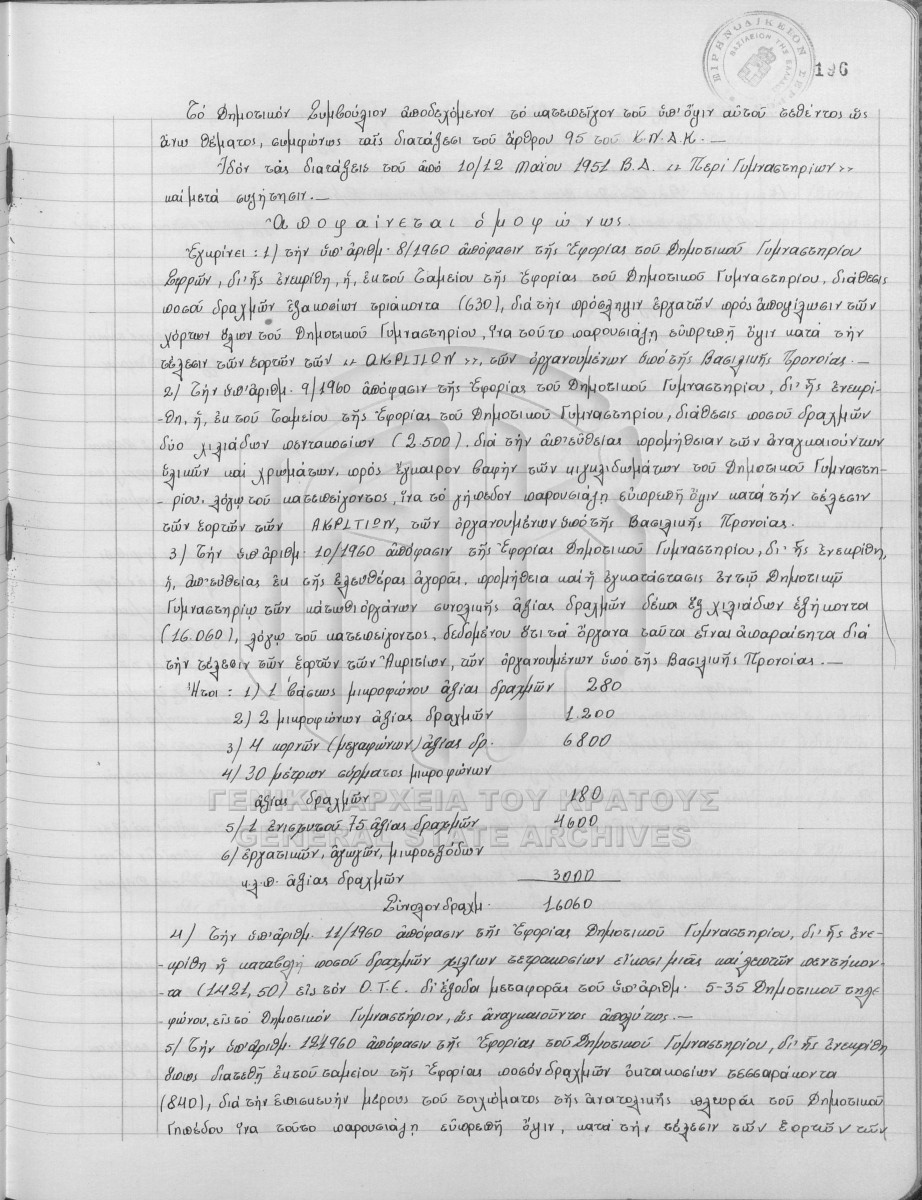 ΕΙΡΗΝΟΔΙΚΕΙΟΝ ΣΕΡ
ΒΑΣΙΛΕΙΟΝ ΤΗΣ ΕΛΛΑΔ
196
Τό Δημοτικόν Συμβούλιον ἀποδεχόμενον τό κατεπεῖγον τοῦ ὑπ' ὄψιν αὐτοῦ τεθέντος ὡς
ἄνω θέματος, συμφώνως ταῖς διατάξεσι τοῦ ἄρθρου 95 τοῦ Κ.Ν.Δ.Κ. —
Ἰδόν τάς διατάξεις τοῦ ἀπό 10/12 Μαΐου 1951 Β.Δ. «Περί Γυμναστηρίων»
καί μετά συζήτησιν. —
Ἀποφαίνεται ὁμοφώνως.
Ἐγκρίνει: 1) τήν ὑπ' ἀριθμ. 8/1960 ἀπόφασιν τῆς Ἐφορίας τοῦ Δημοτικοῦ Γυμναστηρίου
Σερρῶν, δι' ἧς ἐνεκρίθη, ἡ, ἐκ τοῦ Ταμείου τῆς Ἐφορίας τοῦ Δημοτικοῦ Γυμναστηρίου, διάθεσις
ποσοῦ δραχμῶν ἑξακοσίων τριάκοντα (630), διά τήν πρόσληψιν ἐργατῶν πρός ἀποψίλωσιν τῶν
χόρτων ὅλων τοῦ Δημοτικοῦ Γυμναστηρίου, ἵνα τοῦτο παρουσιάζῃ εὐπρεπῆ ὄψιν κατά τήν
τέλεσιν τῶν ἑορτῶν τῶν «ΑΚΡΙΤΙΩΝ», τῶν ὀργανουμένων ὑπό τῆς Βασιλικῆς Προνοίας. —
2) Τήν ὑπ' ἀριθμ. 9/1960 ἀπόφασιν τῆς Ἐφορίας τοῦ Δημοτικοῦ Γυμναστηρίου, δι' ἧς ἐνεκρί-
-θη, ἡ, ἐκ τοῦ Ταμείου τῆς Ἐφορίας τοῦ Δημοτικοῦ Γυμναστηρίου, διάθεσις ποσοῦ δραχμῶν
δύο χιλιάδων πεντακοσίων (2.500), διά τήν ἀπ' εὐθείας προμήθειαν τῶν ἀναγκαιούντων
ὑλικῶν καί χρωμάτων, πρός ἔγκαιρον βαφήν τῶν κιγκλιδωμάτων τοῦ Δημοτικοῦ Γυμναστη-
-ρίου, λόγῳ τοῦ κατεπείγοντος, ἵνα τό γήπεδον παρουσιάζῃ εὐπρεπῆ ὄψιν κατά τήν τέλεσιν
τῶν ἑορτῶν τῶν ΑΚΡΙΤΙΩΝ, τῶν ὀργανουμένων ὑπό τῆς Βασιλικῆς Προνοίας.
3) Τήν ὑπ' ἀριθμ. 10/1960 ἀπόφασιν τῆς Ἐφορίας Δημοτικοῦ Γυμναστηρίου, δι' ἧς ἐνεκρίθη,
ἡ, ἀπ' εὐθείας ἐκ τῆς ἐλευθέρας ἀγορᾶς, προμήθεια καί ἡ ἐγκατάστασις ἐν τῷ Δημοτικῷ
Γυμναστηρίῳ τῶν κάτωθι ὀργάνων συνολικῆς ἀξίας δραχμῶν δέκα ἕξ χιλιάδων ἑξήκοντα
(16.060), λόγῳ τοῦ κατεπείγοντος, δεδομένου ὅτι τά ὄργανα ταῦτα εἶναι ἀπαραίτητα διά
τήν τέλεσιν τῶν ἑορτῶν τῶν Ἀκριτίων, τῶν ὀργανουμένων ὑπό τῆς Βασιλικῆς Προνοίας. —
Ἤτοι: 1) 1 βάσεως μικροφώνου ἀξίας δραχμῶν 280
2) 2 μικροφώνων ἀξίας δραχμῶν 1.200
3) 4 κορνῶν (μεγαφώνων) ἀξίας δρ. 6800
4) 30 μέτρων σύρματος μικροφώνων
ἀξίας δραχμῶν 180
5) 1 ἐνισχυτοῦ 75 ἀξίας δραχμῶν 4600
6) ἐργατικῶν, ἀγωγῶν, μικροεξόδων
κ.λ.π. ἀξίας δραχμῶν 3000
Σύνολον δραχμ. 16060
4) Τήν ὑπ' ἀριθμ. 11/1960 ἀπόφασιν τῆς Ἐφορίας Δημοτικοῦ Γυμναστηρίου, δι' ἧς ἐνε-
-κρίθη ἡ καταβολή ποσοῦ δραχμῶν χιλίων τετρακοσίων εἴκοσι μιᾶς καί λεπτῶν πεντήκον-
-τα (1421,50) εἰς τόν Ο.Τ.Ε. δι' ἔξοδα μεταφορᾶς τοῦ ὑπ' ἀριθμ. 5-35 Δημοτικοῦ τηλε
φώνου, εἰς τό Δημοτικόν Γυμναστήριον, ὡς ἀναγκαιοῦντος ἀπολύτως. —
5) Τήν ὑπ' ἀριθμ. 12/1960 ἀπόφασιν τῆς Ἐφορίας τοῦ Δημοτικοῦ Γυμναστηρίου, δι' ἧς ἐνεκρίθη
ὅπως διατεθῇ ἐκ τοῦ ταμείου τῆς Ἐφορίας ποσόν δραχμῶν ὀκτακοσίων τεσσαράκοντα
(840), διά τήν ἐπισκευήν μέρους τοῦ τοιχώματος τῆς ἀνατολικῆς πλευρᾶς τοῦ Δημοτικοῦ
Γηπέδου ἵνα τοῦτο παρουσιάζῃ εὐπρεπῆ ὄψιν, κατά τήν τέλεσιν τῶν ἑορτῶν τῶν
ΓΕΝΙΚΑ ΑΡΧΕΙΑ ΤΟΥ ΚΡΑΤΟΥΣ
GENERAL STATE ARCHIVES